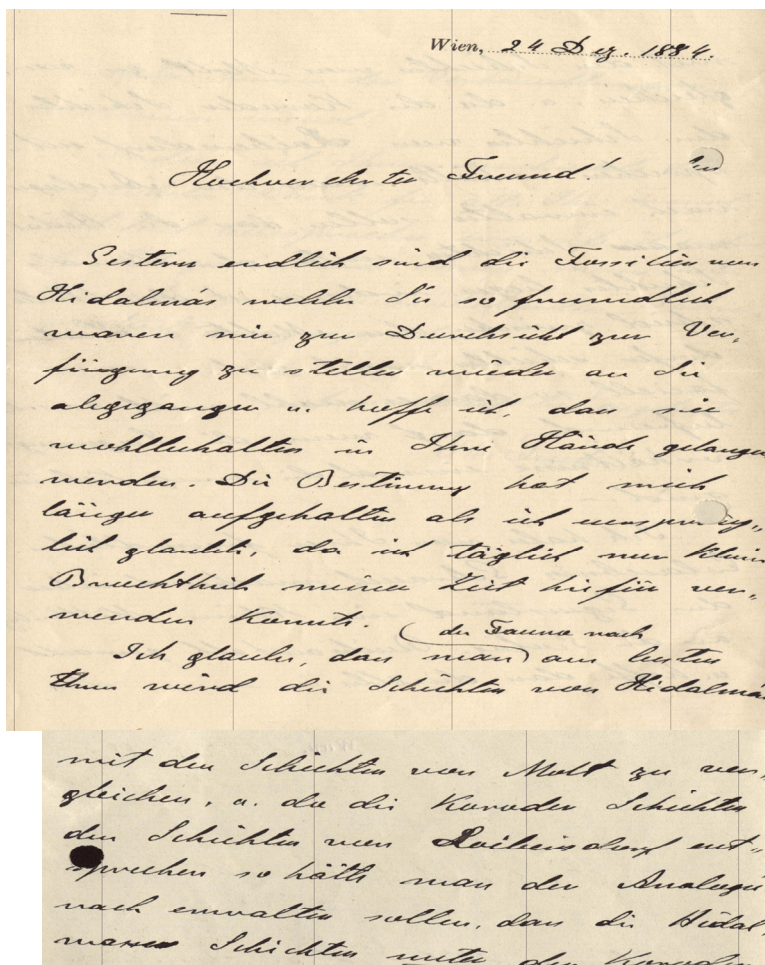 Wien, 24 Dez. 1884.
Hochverehrter Freund!
Gestern endlich sind die Fossilien von
Hidalmás welche Sie so freundlich
waren mir zur Durchsicht zur Ver„
fügung zu stellen wieder an Sie
abgegangen u. hoffe ich, dass sie
wohlbehalten in Ihre Hände gelangen
werden. Die Bestimmung hat mich
länger aufgehalten als ich ursprüng„
lich glaubte, da ich täglich nur kleine
Bruchtheile meiner Zeit hiefür ver„
wenden konnte.
der Fauna nach
Ich glaube, dass man am besten
thun wird die Schichten von Hidalmás
mit den Schichten von Molt zu ver„
gleichen, u. da die Koroder Schichten
den Schichten von Loibersdorf ent„
sprechen so hätte man der Analogie
nach erwarten sollen, dass die Hidal„
maser Schichten unter den Koroder